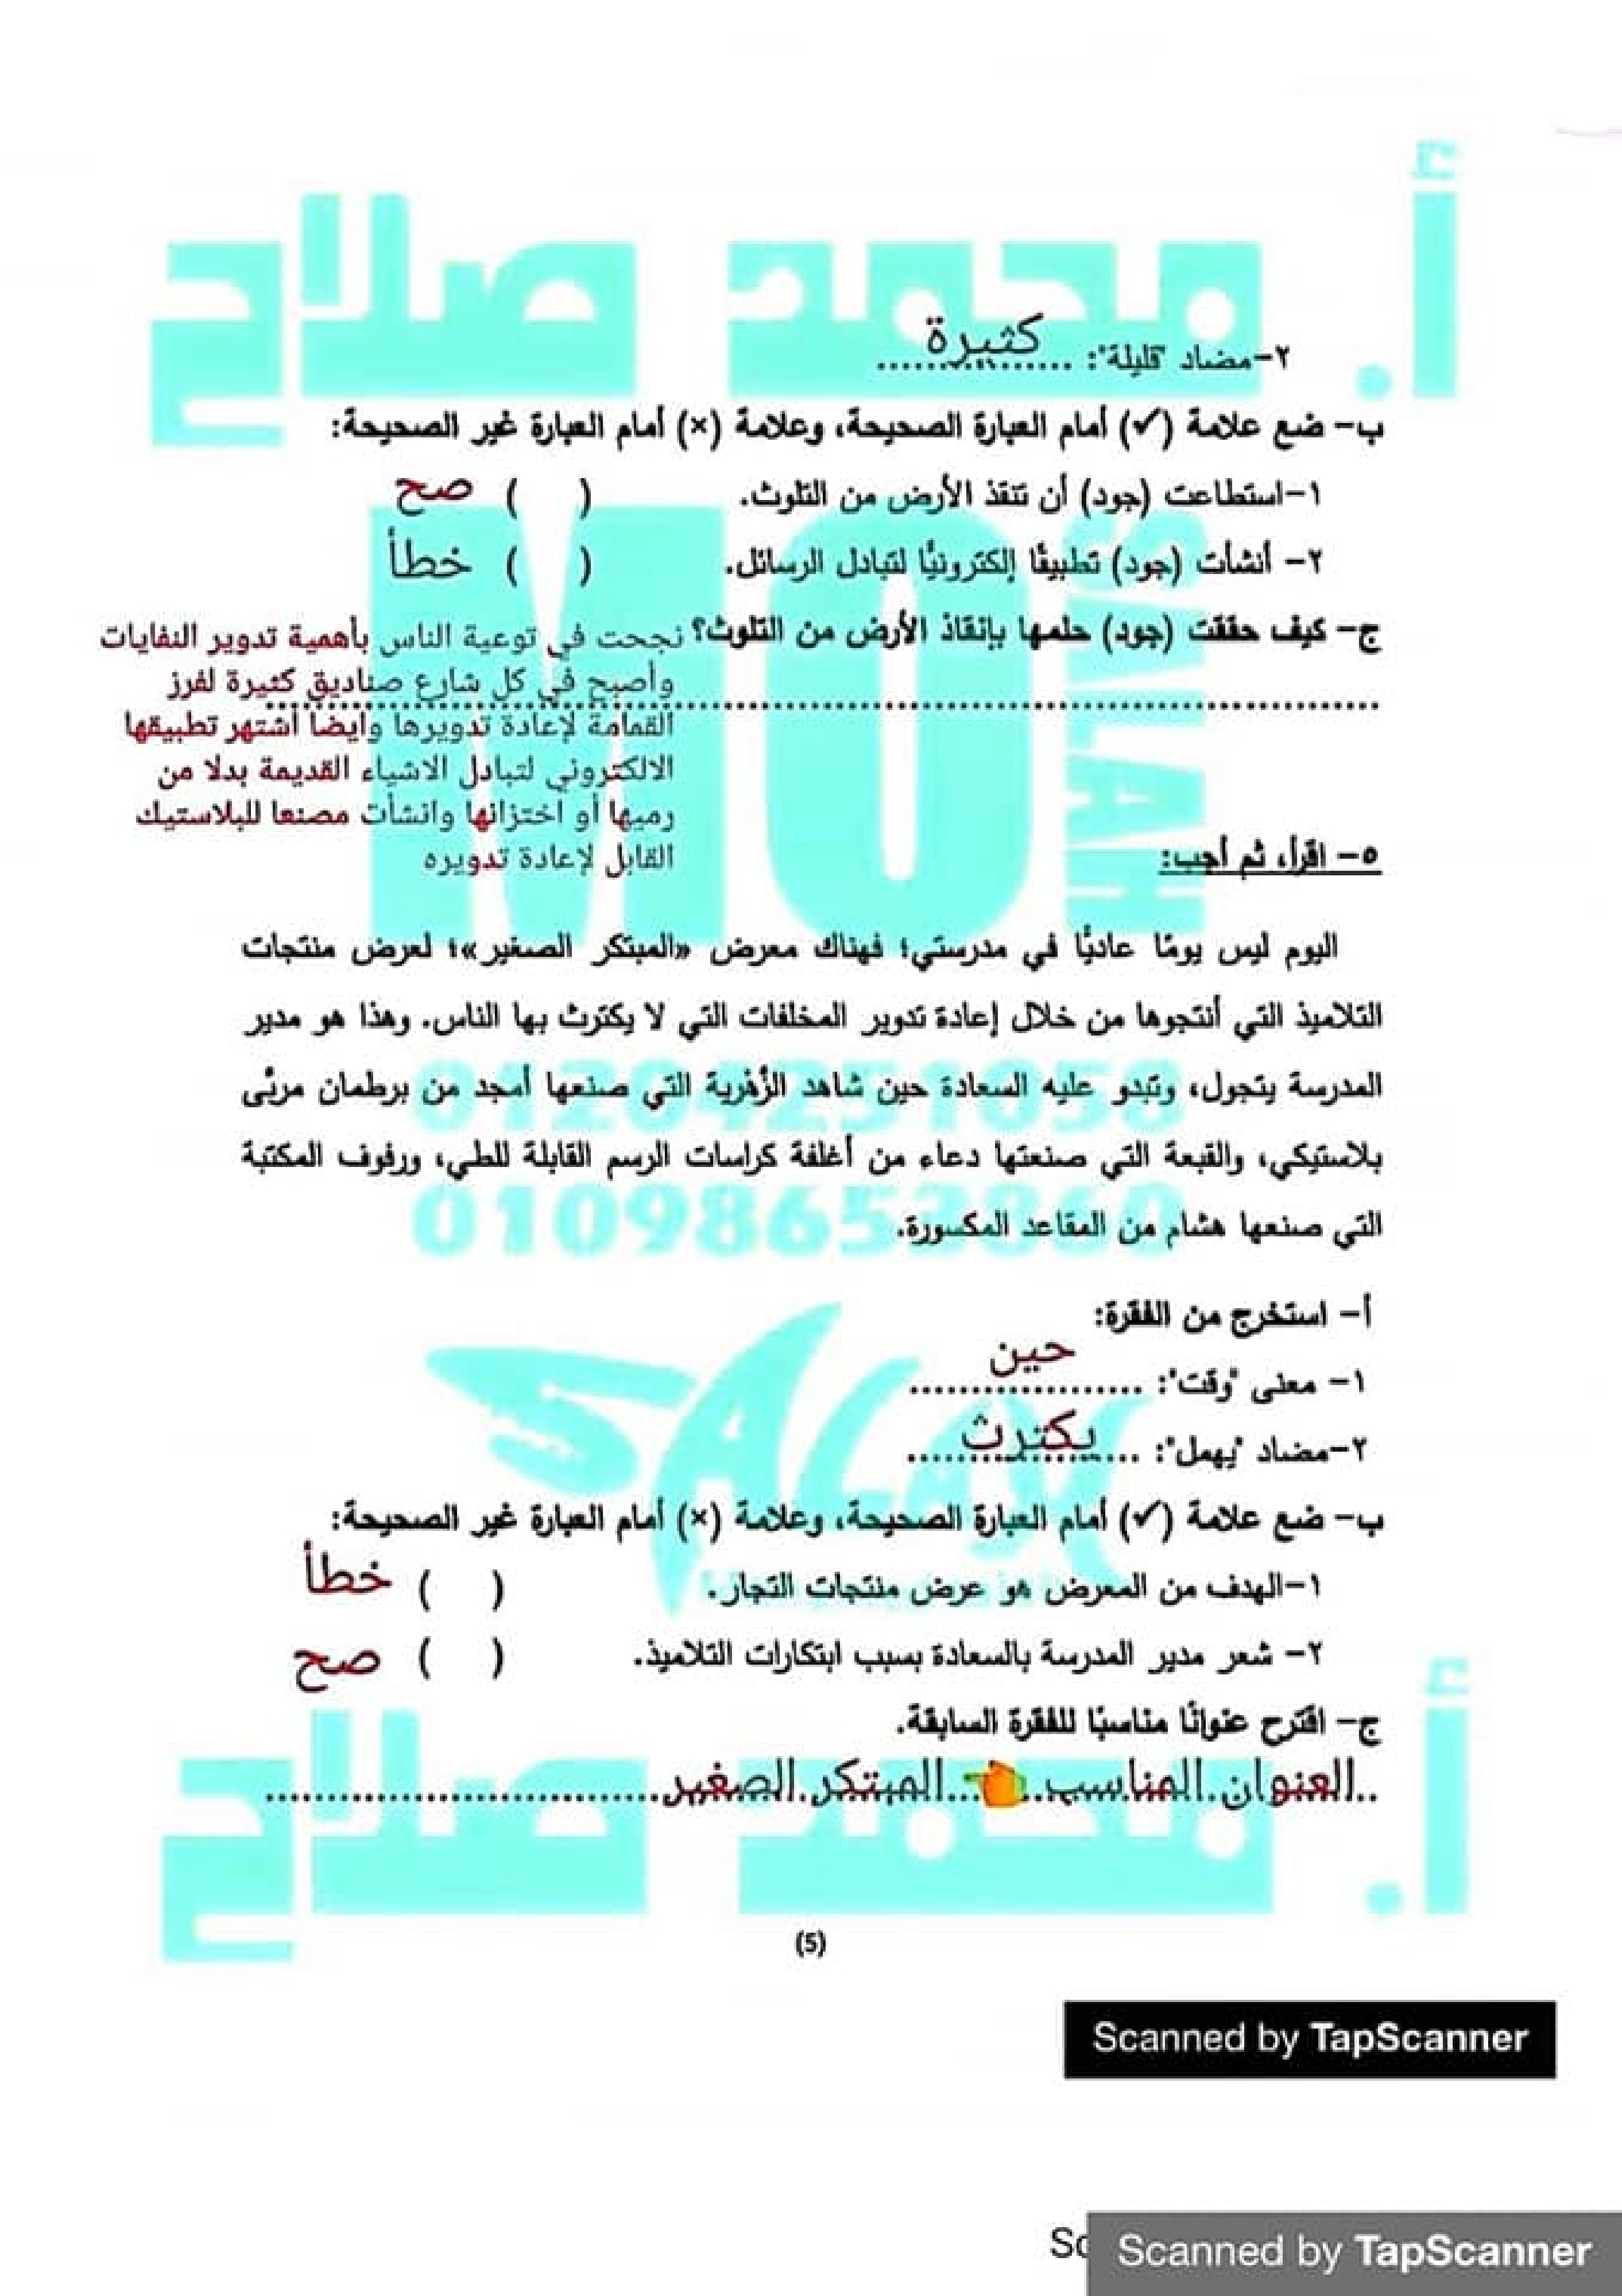 أ. محمد صلاح
٢-مضاد "قليلة": ................ كثيرة
ب- ضع علامة (✓) أمام العبارة الصحيحة، وعلامة (×) أمام العبارة غير الصحيحة:
١-استطاعت (جود) أن تنقذ الأرض من التلوث. ( ) صح
٢- أنشأت (جود) تطبيقًا إلكترونيًّا لتبادل الرسائل. ( ) خطأ
ج- كيف حققت (جود) حلمها بإنقاذ الأرض من التلوث؟ نجحت في توعية الناس بأهمية تدوير النفايات
وأصبح في كل شارع صناديق كثيرة لفرز
القمامة لإعادة تدويرها وايضا اشتهر تطبيقها
الالكتروني لتبادل الاشياء القديمة بدلا من
رميها أو اختزانها وانشأت مصنعا للبلاستيك
القابل لإعادة تدويره
MO
SALAH
٥- اقرأ، ثم أجب:
اليوم ليس يومًا عاديًّا في مدرستي؛ فهناك معرض «المبتكر الصغير»؛ لعرض منتجات
التلاميذ التي أنتجوها من خلال إعادة تدوير المخلفات التي لا يكترث بها الناس. وهذا هو مدير
المدرسة يتجول، وتبدو عليه السعادة حين شاهد الزُّهْرية التي صنعها أمجد من برطمان مربَّى
بلاستيكي، والقبعة التي صنعتها دعاء من أغلفة كراسات الرسم القابلة للطي، ورفوف المكتبة
التي صنعها هشام من المقاعد المكسورة.
أ- استخرج من الفقرة:
١- معنى "وقت": ................... حين
٢-مضاد "يهمل": ................... يكترث
SALAH
ب- ضع علامة (✓) أمام العبارة الصحيحة، وعلامة (×) أمام العبارة غير الصحيحة:
١-الهدف من المعرض هو عرض منتجات التجار. ( ) خطأ
٢- شعر مدير المدرسة بالسعادة بسبب ابتكارات التلاميذ. ( ) صح
ج- اقترح عنوانًا مناسبًا للفقرة السابقة.
العنوان المناسب 👈 المبتكر الصغير
أ. محمد صلاح
(5)
Scanned by TapScanner
Sc
Scanned by TapScanner